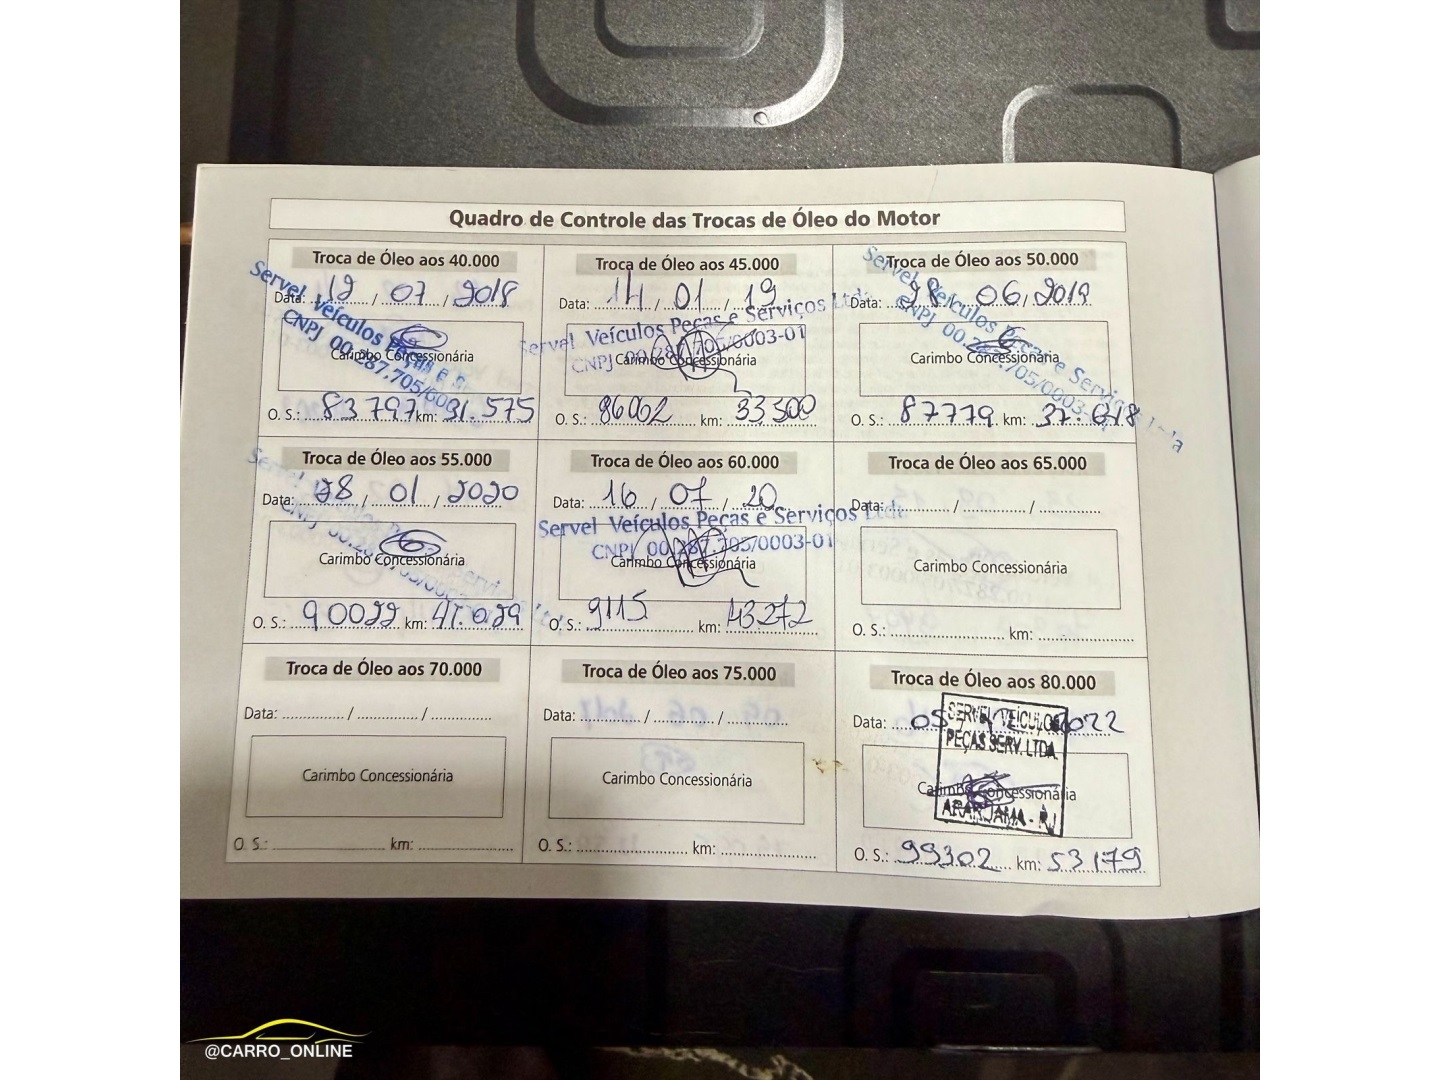 Quadro de Controle das Trocas de Óleo do Motor
Troca de Óleo aos 40.000
Data: 12 / 07 / 2018
Servel Veículos Peças e
CNPJ 00.287.705/000
Carimbo Concessionária
O. S.: 83797 km: 31.575
Troca de Óleo aos 45.000
Data: 14 / 01 / 19
Servel Veículos Peças e Serviços Ltda
CNPJ 00.287.705/0003-01
Carimbo Concessionária
O. S.: 86062 km: 33500
Troca de Óleo aos 50.000
Data: 28 / 06 / 2019
Servel Veículos Peças e Serviços Ltda
CNPJ 00.287.705/0003-
Carimbo Concessionária
O. S.: 87779 km: 37.618
Troca de Óleo aos 55.000
Data: 28 / 01 / 2020
Carimbo Concessionária
O. S.: 90022 km: 41.029
Troca de Óleo aos 60.000
Data: 16 / 07 / 20
Servel Veículos Peças e Serviços Ltda
CNPJ 00.287.705/0003-01
Carimbo Concessionária
O. S.: 9115 km: 43272
Troca de Óleo aos 65.000
Data: / /
Carimbo Concessionária
O. S.: km:
Troca de Óleo aos 70.000
Data: / /
Carimbo Concessionária
O. S.: km:
Troca de Óleo aos 75.000
Data: / /
Carimbo Concessionária
O. S.: km:
Troca de Óleo aos 80.000
Data: 05 2022
SERVEL VEÍCULOS
PEÇAS SERV. LTDA
Carimbo Concessionária
ARARUAMA - RJ
O. S.: 99302 km: 53179
@CARRO_ONLINE